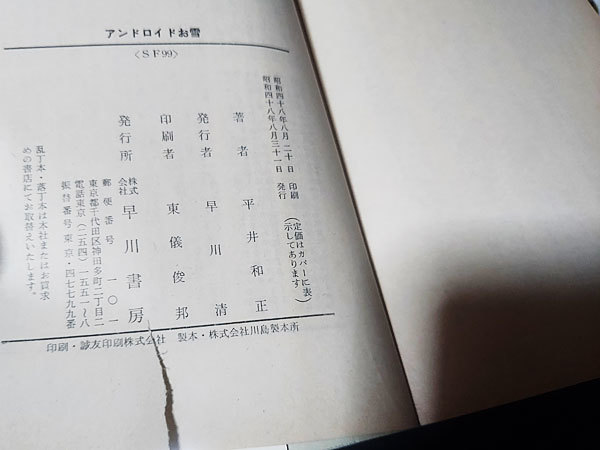 アンドロイドお雪
〈ＳＦ99〉
昭和四十八年八月二十日　印刷
昭和四十八年八月三十一日　発行
（定価はカバーに表示してあります）
著者　平井和正
発行者　早川清
印刷者　東儀俊邦
発行所　株式会社　早川書房
郵便番号　一〇一
東京都千代田区神田多町二丁目二
電話東京（二五四）一五五一〜八
振替番号東京・四七七九九番
乱丁本・落丁本は本社またはお買求
めの書店にてお取替えいたします。
印刷・誠友印刷株式会社　製本・株式会社川島製本所